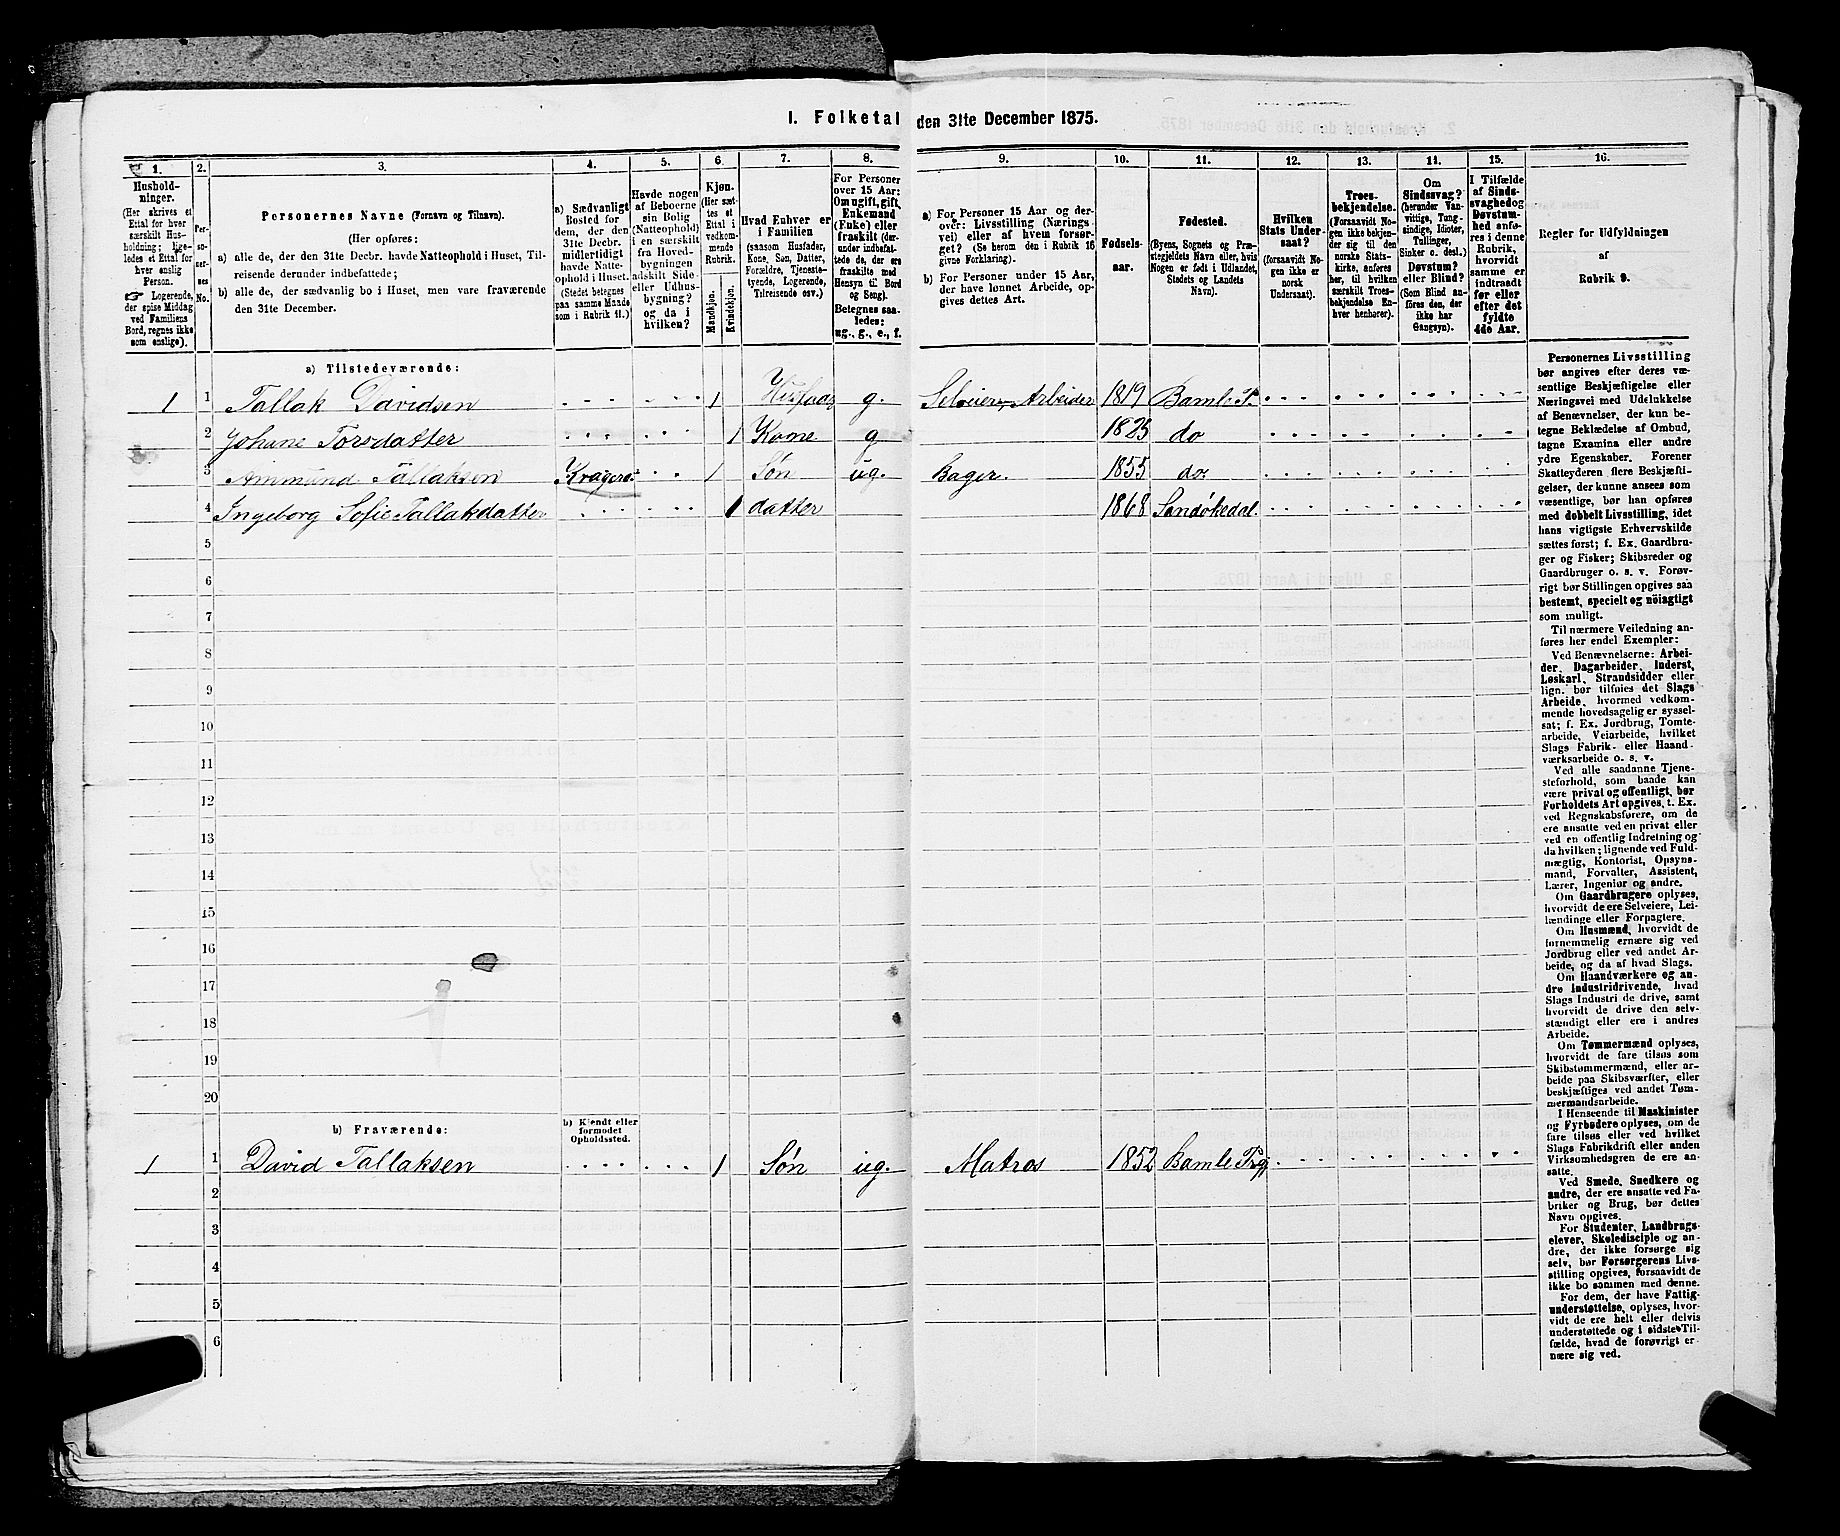 I. Folketal den 31te December 1875.
1.
2.
3.
4.
5.
6.
7.
8.
9.
10.
11.
12.
13.
14.
15.
16.
Husholdninger.
(Her skrives et
Ettal for hver
særskilt Husholdning; ligeledes
et Ettal for
hver enslig
Person.
Logerende,
der spise Middag
ved Familiens
Bord, regnes ikke
som enslige).
Personernes No.
Personernes Navne (Fornavn og Tilnavn).
(Her opføres:
a) alle de, der den 31te Decbr. havde Natteophold i Huset, Tilreisende
derunder indbefattede;
b) alle de, der sædvanlig bo i Huset, men vare fraværende
den 31te December.
a) Sædvanligt
Bosted for
dem, der den
31te Decbr.
midlertidigt
havde Natteophold
i Huset.
(Stedet betegnes
paa samme Maade
som i Rubrik 11.)
Havde nogen
af Beboerne
sin Bolig
(Natteophold)
i en særskilt
fra Hovedbygningen
adskilt Side-
eller Udhusbygning?
og da i
hvilken?
Kjøn.
(Her sættes
et
Ettal i
vedkommende
Rubrik.
Mandkjøn.
Kvindekjøn.
Hvad Enhver er
i Familien
(saasom Husfader,
Kone, Søn, Datter,
Forældre, Tjenestetyende,
Logerende,
Tilreisende osv.)
For Personer
over 15 Aar:
Om ugift, gift,
Enkemand
(Enke) eller
fraskilt (derunder
indbefattede
de, der ere
fraskilte med
Hensyn til Bord
og Seng).
Betegnes saaledes:
ug., g., e., f.
a) For Personer 15 Aar og derover:
Livsstilling (Næringsvei)
eller af hvem forsørget?
(Se herom den i Rubrik 16
givne Forklaring).
b) For Personer under 15 Aar,
der have lønnet Arbeide, opgives
dettes Art.
Fødselsaar.
Fødested.
(Byens, Sognets og Præstegjeldets
Navn eller, hvis
Nogen er født i Udlandet,
Stedets og Landets
Navn).
Hvilken
Stats Undersaat?
(forsaavidt Nogen
ikke er
norsk
Undersaat).
Troesbekjendelse.
(Forsaavidt Nogen
ikke bekjender
sig til den
norske Statskirke,
anføres
her, til hvilken
særskilt Troesbekjendelse
Enhver
henhører).
Om
Sindssvag?
(herunder Vanvittige,
Tungsindige,
Idioter,
Tullinger,
Sinker o. desl.)
Døvstum?
eller Blind?
(Som Blind anføres
den, der
ikke har
Gangsyn).
I Tilfælde
af Sindssvaghed
og
Døvstumhed
anføres
i denne
Rubrik,
hvorvidt
samme er
indtraadt
før eller
efter det
fyldte
4de Aar.
Regler for Udfyldningen
af
Rubrik 9.
a) Tilstedeværende:
1 1 Tallak Davidsen 1 Husfader g. Selveier, Arbeider 1819 Bamle P.
2 Johane Torsdatter 1 Kone g 1825 do
3 Ammund Tallaksen Kragerø 1 Søn ug. Bager. 1855 do.
4 Ingeborg Sofie Tallaksdatter 1 datter 1868 Sandøkedal.
5
6
7
8
9
10
11
12
13
14
15
16
17
18
19
20
b) Fraværende:
b) Kjendt eller
formodet
Opholdssted.
1 1 David Tallaksen 1 Søn ug. Matros 1852 Bamle Prgj.
2
3
4
5
6
Personernes Livsstilling
bør angives efter deres væsentlige
Beskjæftigelse eller
Næringsvei med Udelukkelse
af Benævnelser, der kun betegne
Beklædelse af Ombud,
tagne Examina eller andre
ydre Egenskaber. Forener
Skatteyderen flere Beskjæftigelser,
der kunne ansees som
væsentlige, bør han opføres
med dobbelt Livsstilling, idet
hans vigtigste Erhvervskilde
sættes først; f. Ex. Gaardbruger
og Fisker; Skibsreder og
Gaardbruger o. s. v. Forøvrigt
bør Stillingen opgives saa
bestemt, specielt og nöiagtigt
som muligt.
Til nærmere Veiledning anføres
her endel Exempler:
Ved Benævnelserne: Arbeider,
Dagarbeider, Inderst,
Løskarl, Strandsidder eller
lign. bør tilføies det Slags
Arbeide, hvormed vedkommende
hovedsagelig er sysselsat;
f. Ex. Jordbrug, Tomtearbeide,
Veiarbeide, hvilket
Slags Fabrik- eller Haandværksarbeide
o. s. v.
Ved alle saadanne Tjenesteforhold,
som baade kan
være privat og offentligt, bør
Forholdets Art opgives, t. Ex.
ved Regnskabsførere, om de
ere ansatte ved en privat eller
ved en offentlig Indretning og
da hvilken; lignende ved Fuldmægtig,
Kontorist, Opsynsmand,
Forvalter, Assistent,
Lærer, Ingeniør og andre.
Om Gaardbrugere oplyses,
hvorvidt de ere Selveiere, Leilændinge
eller Forpagtere.
Om Husmænd, hvorvidt de
fornemmelig ernære sig ved
Jordbrug eller ved andet Arbeide,
og da af hvad Slags.
Om Haandværkere og andre
industridrivende, hvad
Slags Industri de drive, samt
hvorvidt de drive den selvstændigt
eller ere i andres
Arbeide.
Om Tømmermænd oplyses,
hvorvidt de fare tilsøs som
Skibstømmermænd, eller arbeide
paa Skibsværfter, eller
beskjæftiges ved andet Tømmermandsarbeide.
I Henseende til Maskinister
og Fyrbødere oplyses, om de
fare tilsøs eller ved hvilket
Slags Fabrikdrift eller anden
Virksomhedsgren de ere ansatte.
Ved Smede, Snedkere og
andre, der ere ansatte ved Fabriker
og Brug, bør dettes
Navn opgives.
For Studenter, Landbrugselever,
Skoledisciple og andre,
der ikke forsørge sig
selv, bør Forsørgerens Livsstilling
opgives, forsaavidt de
ikke bo sammen med denne.
For dem, der have Fattigunderstøttelse,
oplyses, hvorvidt
de ere helt eller delvis
understøttede og i sidste Tilfælde,
hvad de forøvrigt ernære
sig ved.